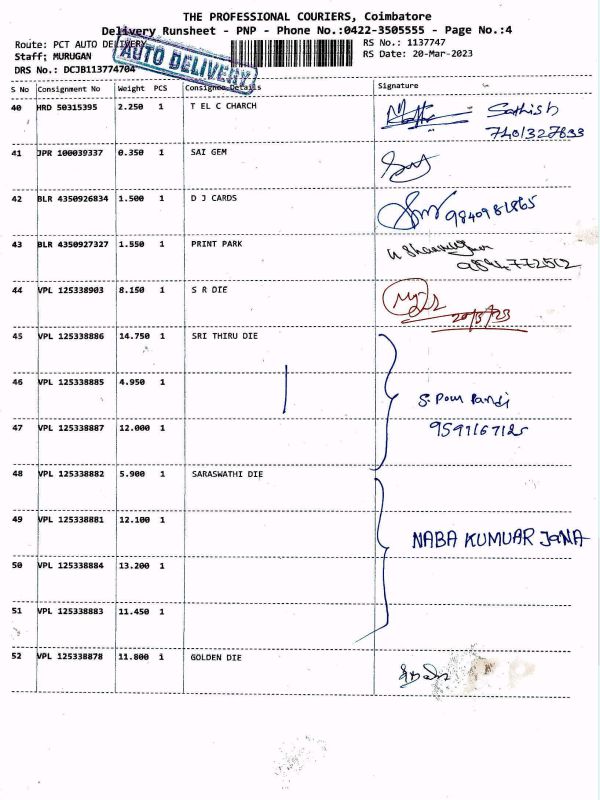 THE PROFESSIONAL COURIERS, Coimbatore
Delivery Runsheet - PNP - Phone No.:0422-3505555 - Page No.:4
Route: PCT AUTO DELIVERY
RS No.: 1137747
Staff: MURUGAN
RS Date: 20-Mar-2023
DRS No.: DCJB113774704
AUTO DELIVERY
S No Consignment No Weight PCS Consignee Details Signature
40 HRD 50315395 2.250 1 T EL C CHARCH Sathish
7401327833
41 JPR 100039337 0.350 1 SAI GEM
42 BLR 4350926834 1.500 1 D J CARDS 9840981865
43 BLR 4350927327 1.550 1 PRINT PARK
44 VPL 125338903 8.150 1 S R DIE
20/3/23
45 VPL 125338886 14.750 1 SRI THIRU DIE
46 VPL 125338885 4.950 1
47 VPL 125338887 12.000 1
48 VPL 125338882 5.900 1 SARASWATHI DIE
49 VPL 125338881 12.100 1 NABA KUMUAR JANA
50 VPL 125338884 13.200 1
51 VPL 125338883 11.450 1
52 VPL 125338878 11.800 1 GOLDEN DIE